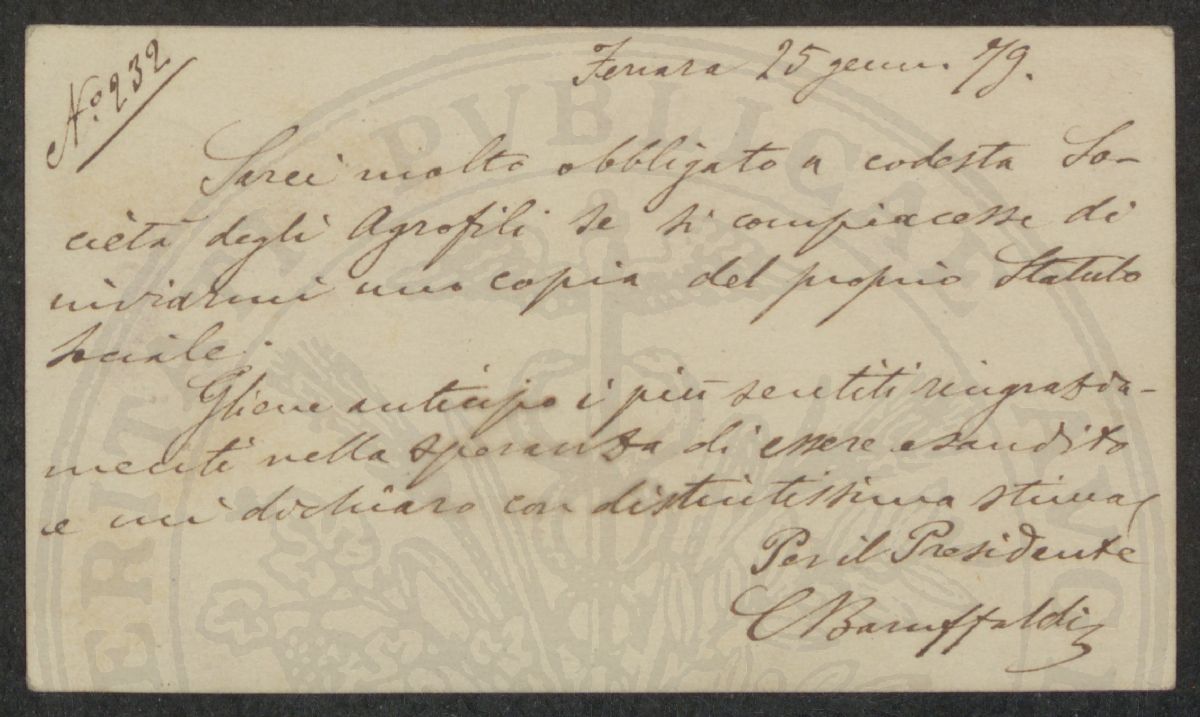 No. 232
Ferrara 25 genn. 79.
Sarei molto obbligato a codesta So-
cietà degli Agrofili se si compiacesse di
inviarmi una copia del proprio Statuto
sociale.
Gliene anticipo i più sentiti ringrazia-
menti nella speranza di essere esaudito
e mi dichiaro con distintissima stima
Per il Presidente
C Baruffaldi
PVBLICAE